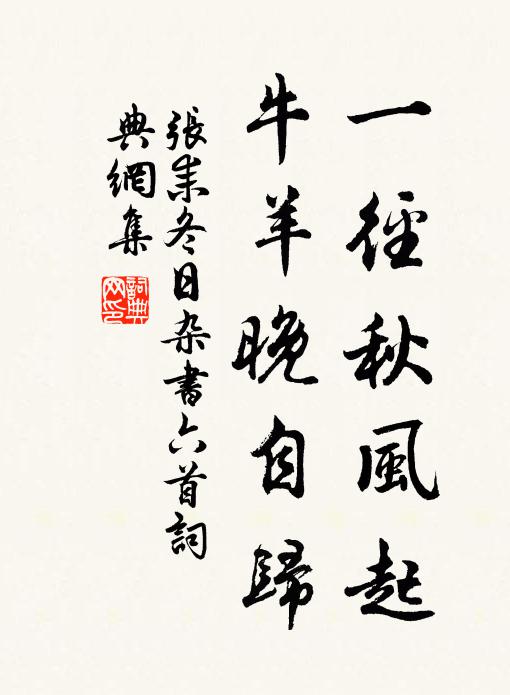 一徑秋風起
牛羊晚自歸
張耒冬日杂書六首詞
典網集
詞典
网印